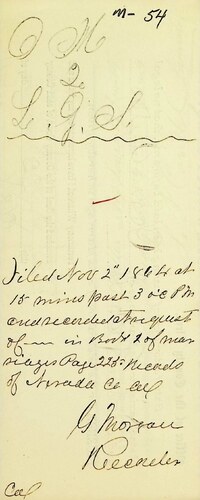 M - 54
O M
2
L. G. S.
Filed Nov 2" 1864 at
15 mins past 3 o'c P M
and recorded at request
of —— in Book 2 of mar
riages Page 225 Records
of Nevada Co Cal
G Morgan
Recorder
Cal